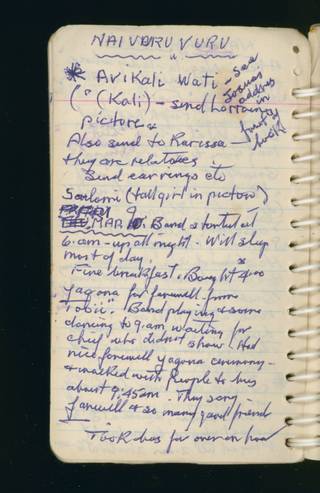 NAIVURUVURU
* Avikali Wati - see
Josuas
address
in
front of
book
(" (Kali) - send Lorraine
picture.
Also send to Rarissa -
they are relatives.
Send earrings etc
Sailomi (tall girl in picture)
MAR. Band started at
6. am - up all night. Will sleep
most of day.
Fine breakfast. Bought
yagona for farewell from
Band playing & some
dancing to 9. am waiting for
chief who didn't show. Had
nice farewell yagona ceremony -
& walked with people to bus
about 9:45am. They sang -
farewell & so many good friends
Took bus for over an hour